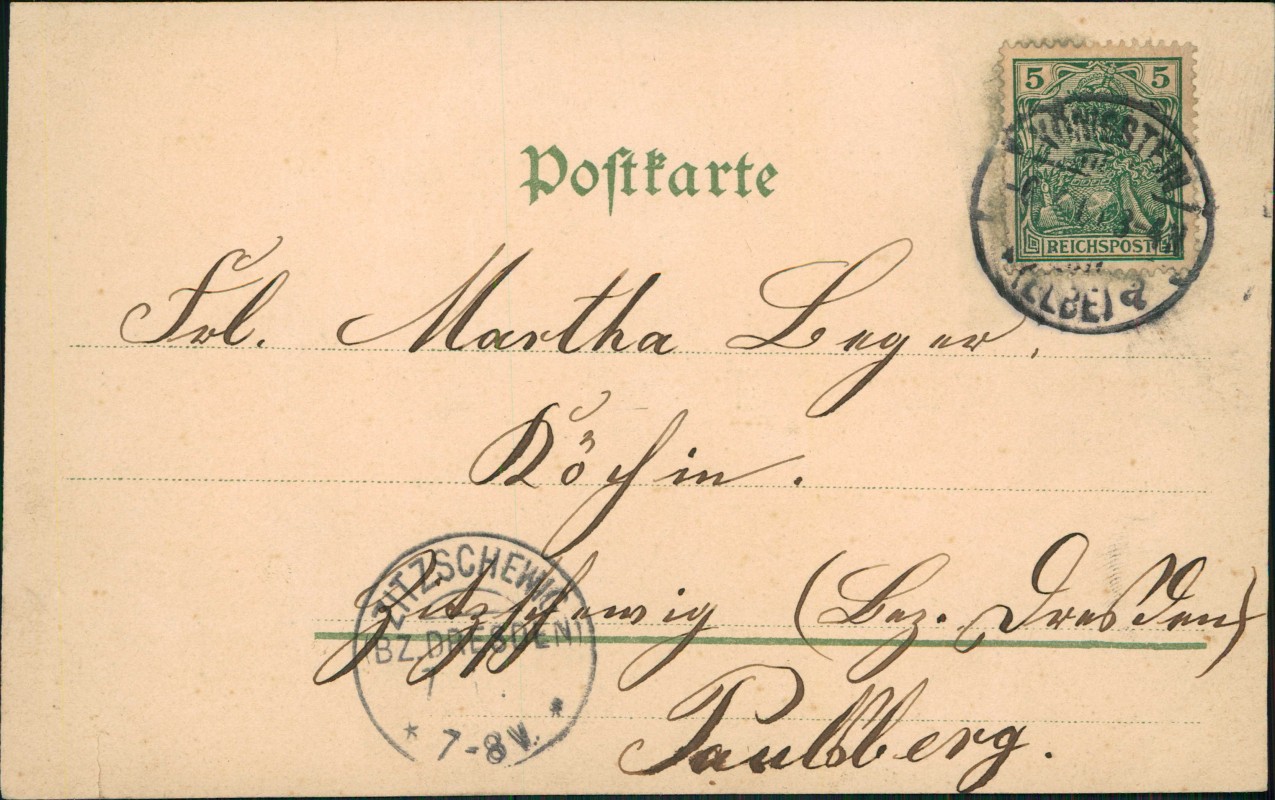 5 5
REICHSPOST
KÖNIGSTEIN
(ELBE) a
Postkarte
Frl. Martha Leger,
Köchin.
Zitzschewig (Bez. Dresden)
Paulsberg.
ZITZSCHEWIG
(BZ. DRESDEN)
* 7-8 V. *